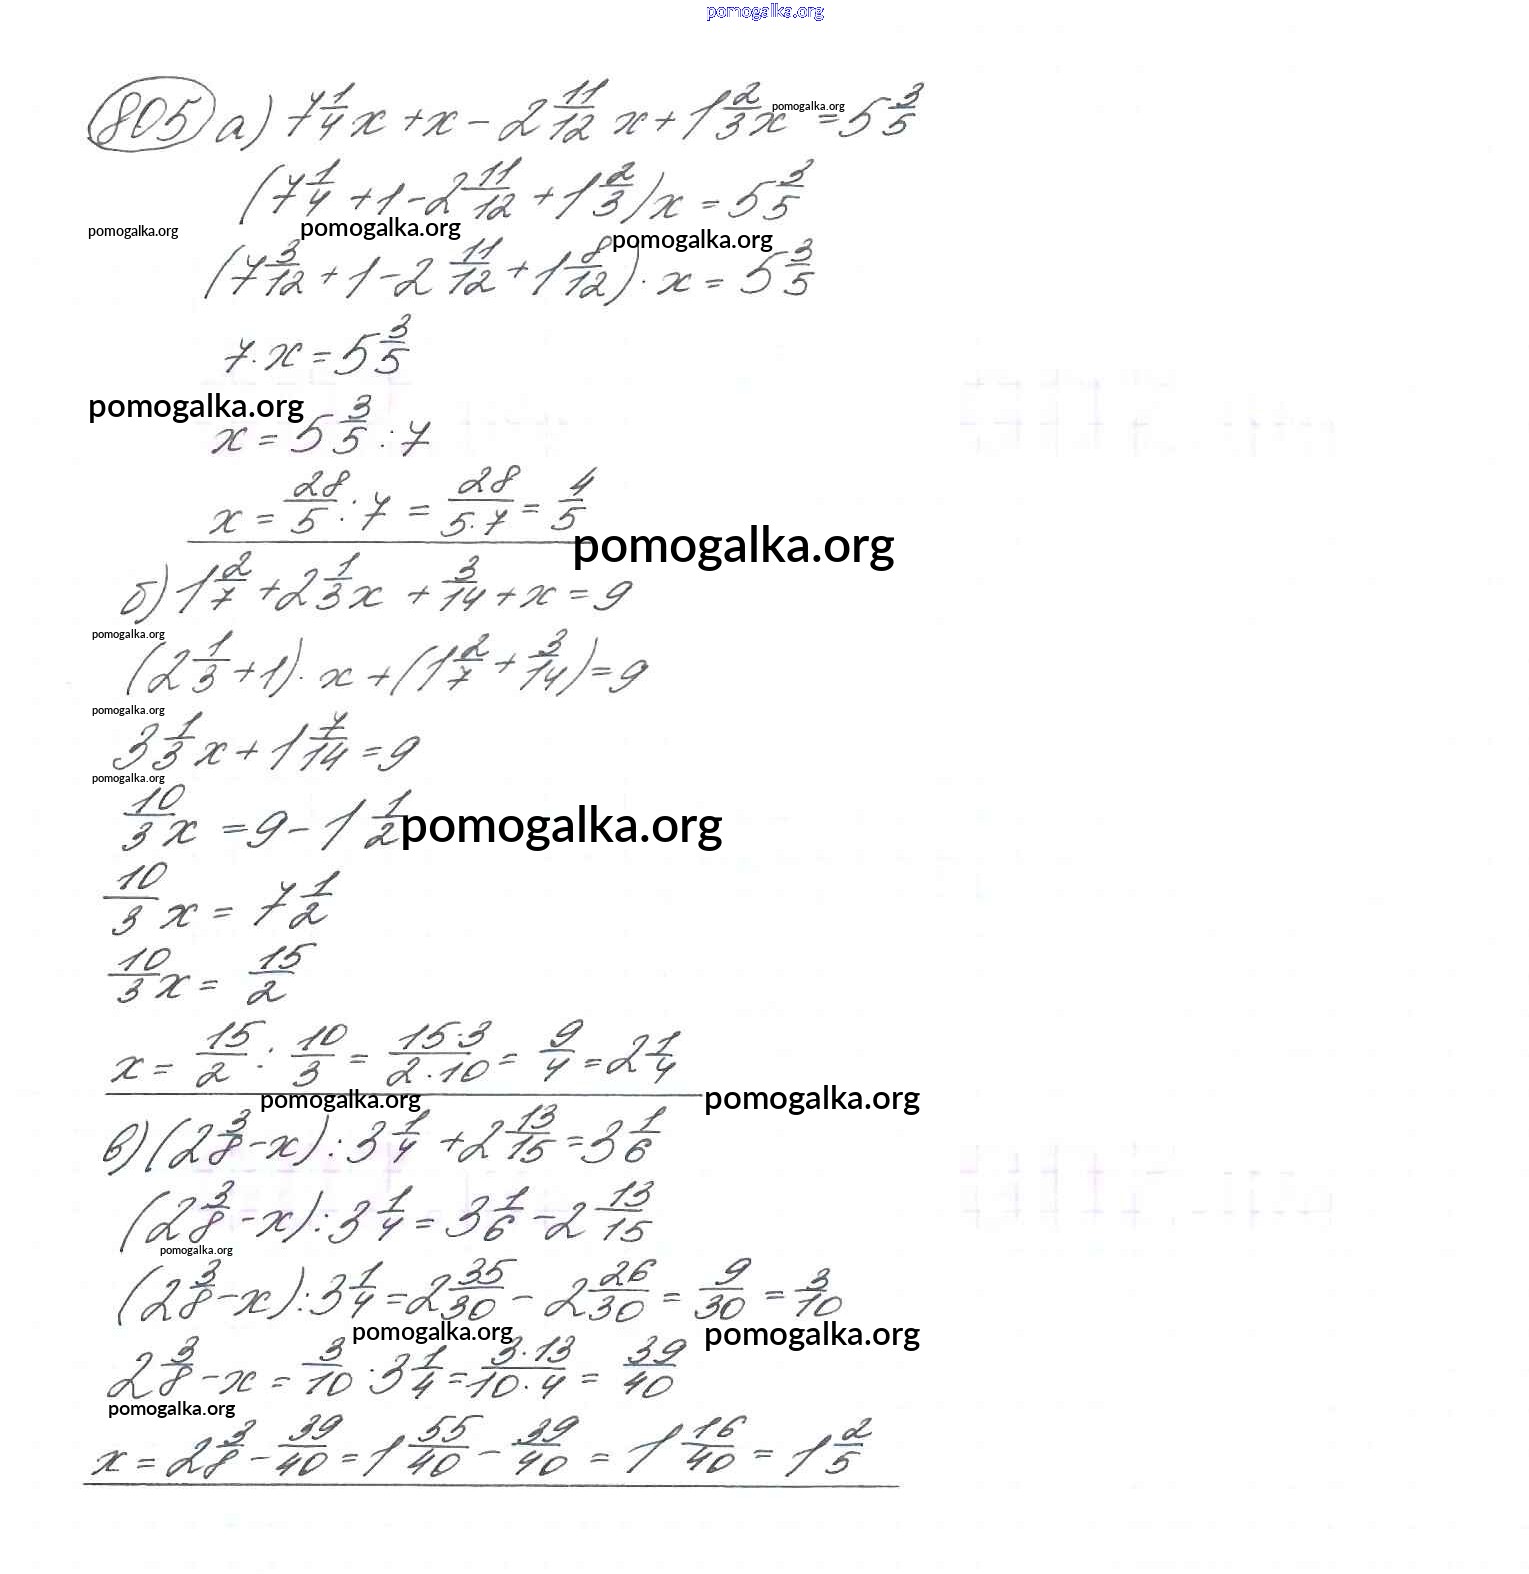 pomogalka.org
805 а) 7 1/4 x + x − 2 11/12 x + 1 2/3 x = 5 3/5
pomogalka.org
(7 1/4 + 1 − 2 11/12 + 1 2/3) x = 5 3/5
pomogalka.org pomogalka.org pomogalka.org
(7 3/12 + 1 − 2 11/12 + 1 8/12) · x = 5 3/5
7 · x = 5 3/5
pomogalka.org
x = 5 3/5 : 7
x = 28/5 : 7 = 28/(5 · 7) = 4/5
pomogalka.org
б) 1 2/7 + 2 1/3 x + 3/14 + x = 9
pomogalka.org
(2 1/3 + 1) · x + (1 2/7 + 3/14) = 9
pomogalka.org
3 1/3 x + 1 7/14 = 9
pomogalka.org
10/3 x = 9 − 1 1/2
pomogalka.org
10/3 x = 7 1/2
10/3 x = 15/2
x = 15/2 : 10/3 = (15 · 3)/(2 · 10) = 9/4 = 2 1/4
pomogalka.org pomogalka.org
в) (2 3/8 − x) : 3 1/4 + 2 13/15 = 3 1/6
(2 3/8 − x) : 3 1/4 = 3 1/6 − 2 13/15
pomogalka.org
(2 3/8 − x) : 3 1/4 = 2 35/30 − 2 26/30 = 9/30 = 3/10
pomogalka.org pomogalka.org
2 3/8 − x = 3/10 · 3 1/4 = (3 · 13)/(10 · 4) = 39/40
pomogalka.org
x = 2 3/8 − 39/40 = 1 55/40 − 39/40 = 1 16/40 = 1 2/5